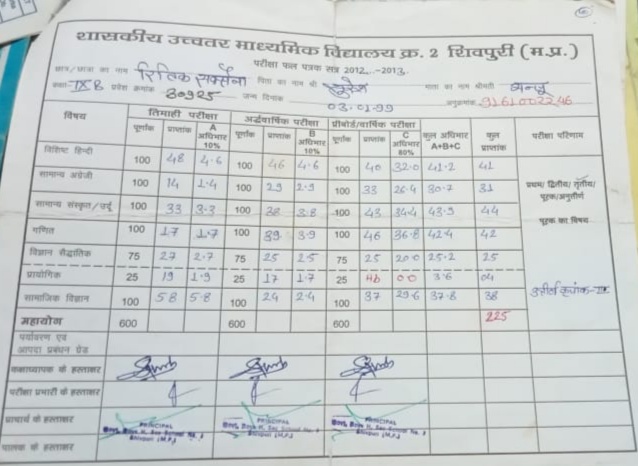 शासकीय उच्चतर माध्यमिक विद्यालय क्र. 2 शिवपुरी (म.प्र.)
परीक्षा फल पत्रक सत्र 2012 -2013
छात्र/छात्रा का नाम रितिक सक्सैना पिता का नाम श्री सुरेश माता का नाम श्रीमती
कक्षा IX B प्रवेश क्रमांक 30925 जन्म दिनांक 03.01.99 अनुक्रमांक 9161002246
विषय तिमाही परीक्षा अर्द्धवार्षिक परीक्षा प्रीबोर्ड/वार्षिक परीक्षा कुल अधिभार A+B+C कुल प्राप्तांक परीक्षा परिणाम
पूर्णांक प्राप्तांक A अधिभार 10% पूर्णांक प्राप्तांक B अधिभार 10% पूर्णांक प्राप्तांक C अधिभार 80%
विशिष्ट हिन्दी 100 48 4.6 100 46 4.6 100 40 32.0 41.2 41
सामान्य अंग्रेजी 100 14 1.4 100 29 2.9 100 33 26.4 30.7 31 प्रथम/द्वितीय/तृतीय/
पूरक/अनुत्तीर्ण
सामान्य संस्कृत/उर्दू 100 33 3.3 100 38 3.8 100 43 34.4 43.9 44
पूरक का विषय
गणित 100 17 1.7 100 39 3.9 100 46 36.8 42.4 42
विज्ञान सैद्धांतिक 75 27 2.7 75 25 2.5 75 25 20.0 25.2 25
प्रायोगिक 25 19 1.9 25 17 1.7 25 Ab 0.0 3.6 04
सामाजिक विज्ञान 100 58 5.8 100 24 2.4 100 37 29.6 37.8 38
महायोग 600 600 600 225
पर्यावरण एवं
आपदा प्रबंधन ग्रेड
कक्षाध्यापक के हस्ताक्षर
परीक्षा प्रभारी के हस्ताक्षर
प्राचार्य के हस्ताक्षर PRINCIPAL PRINCIPAL PRINCIPAL
Govt. Boys H. Sec School No. 2 Govt. Boys H. Sec School No. 2 Govt. Boys H. Sec School No. 2
Shivpuri (M.P.) Shivpuri (M.P.) Shivpuri (M.P.)
पालक के हस्ताक्षर